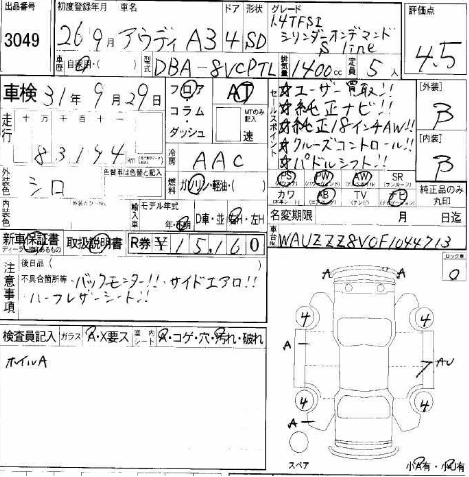 出品番号
3049
初度登録年月 車名 ドア 形状 グレード
26年9月 アウディ A3 4 SD
1.4TFSI
シリンダーオンデマンド
S line
評価点
4.5
型式 DBA-8VCPTL 排気量 1400cc 定員 5人
車検 31年9月29日
走行
十万千百十
83,194
フロア
コラム
ダッシュ
AT
MTのみ記入
速
冷房 AAC
燃料 ガソリン・軽油・( )
セールスポイント
☆ユーザー買取!!
☆純正ナビ!!
☆純正18インチAW!!
☆クルーズコントロール!!
☆パドルシフト!!
[外装]
B
[内装]
B
PS PW AW SR
カワ AB TV
純正品のみ丸印
外装色 シロ
色替車は色替と記入
内装色
輸入車 モデル年式
D車・並 左H・右H
名変期限 月 日迄
車台No WAUZZZ8V0F1044713
新車保証書 取扱説明書 R券 ¥15,160
注意事項
後日品( )
不具合箇所等
・バックモニター!!・サイドエアロ!!
・ハーフレザーシート!!
検査員記入 ガラス A・X要ス 室内シート A・コゲ・穴・汚れ・破れ
ホイルA
0
4 4
A AU
4 4
A
スペア
小A有・小U有